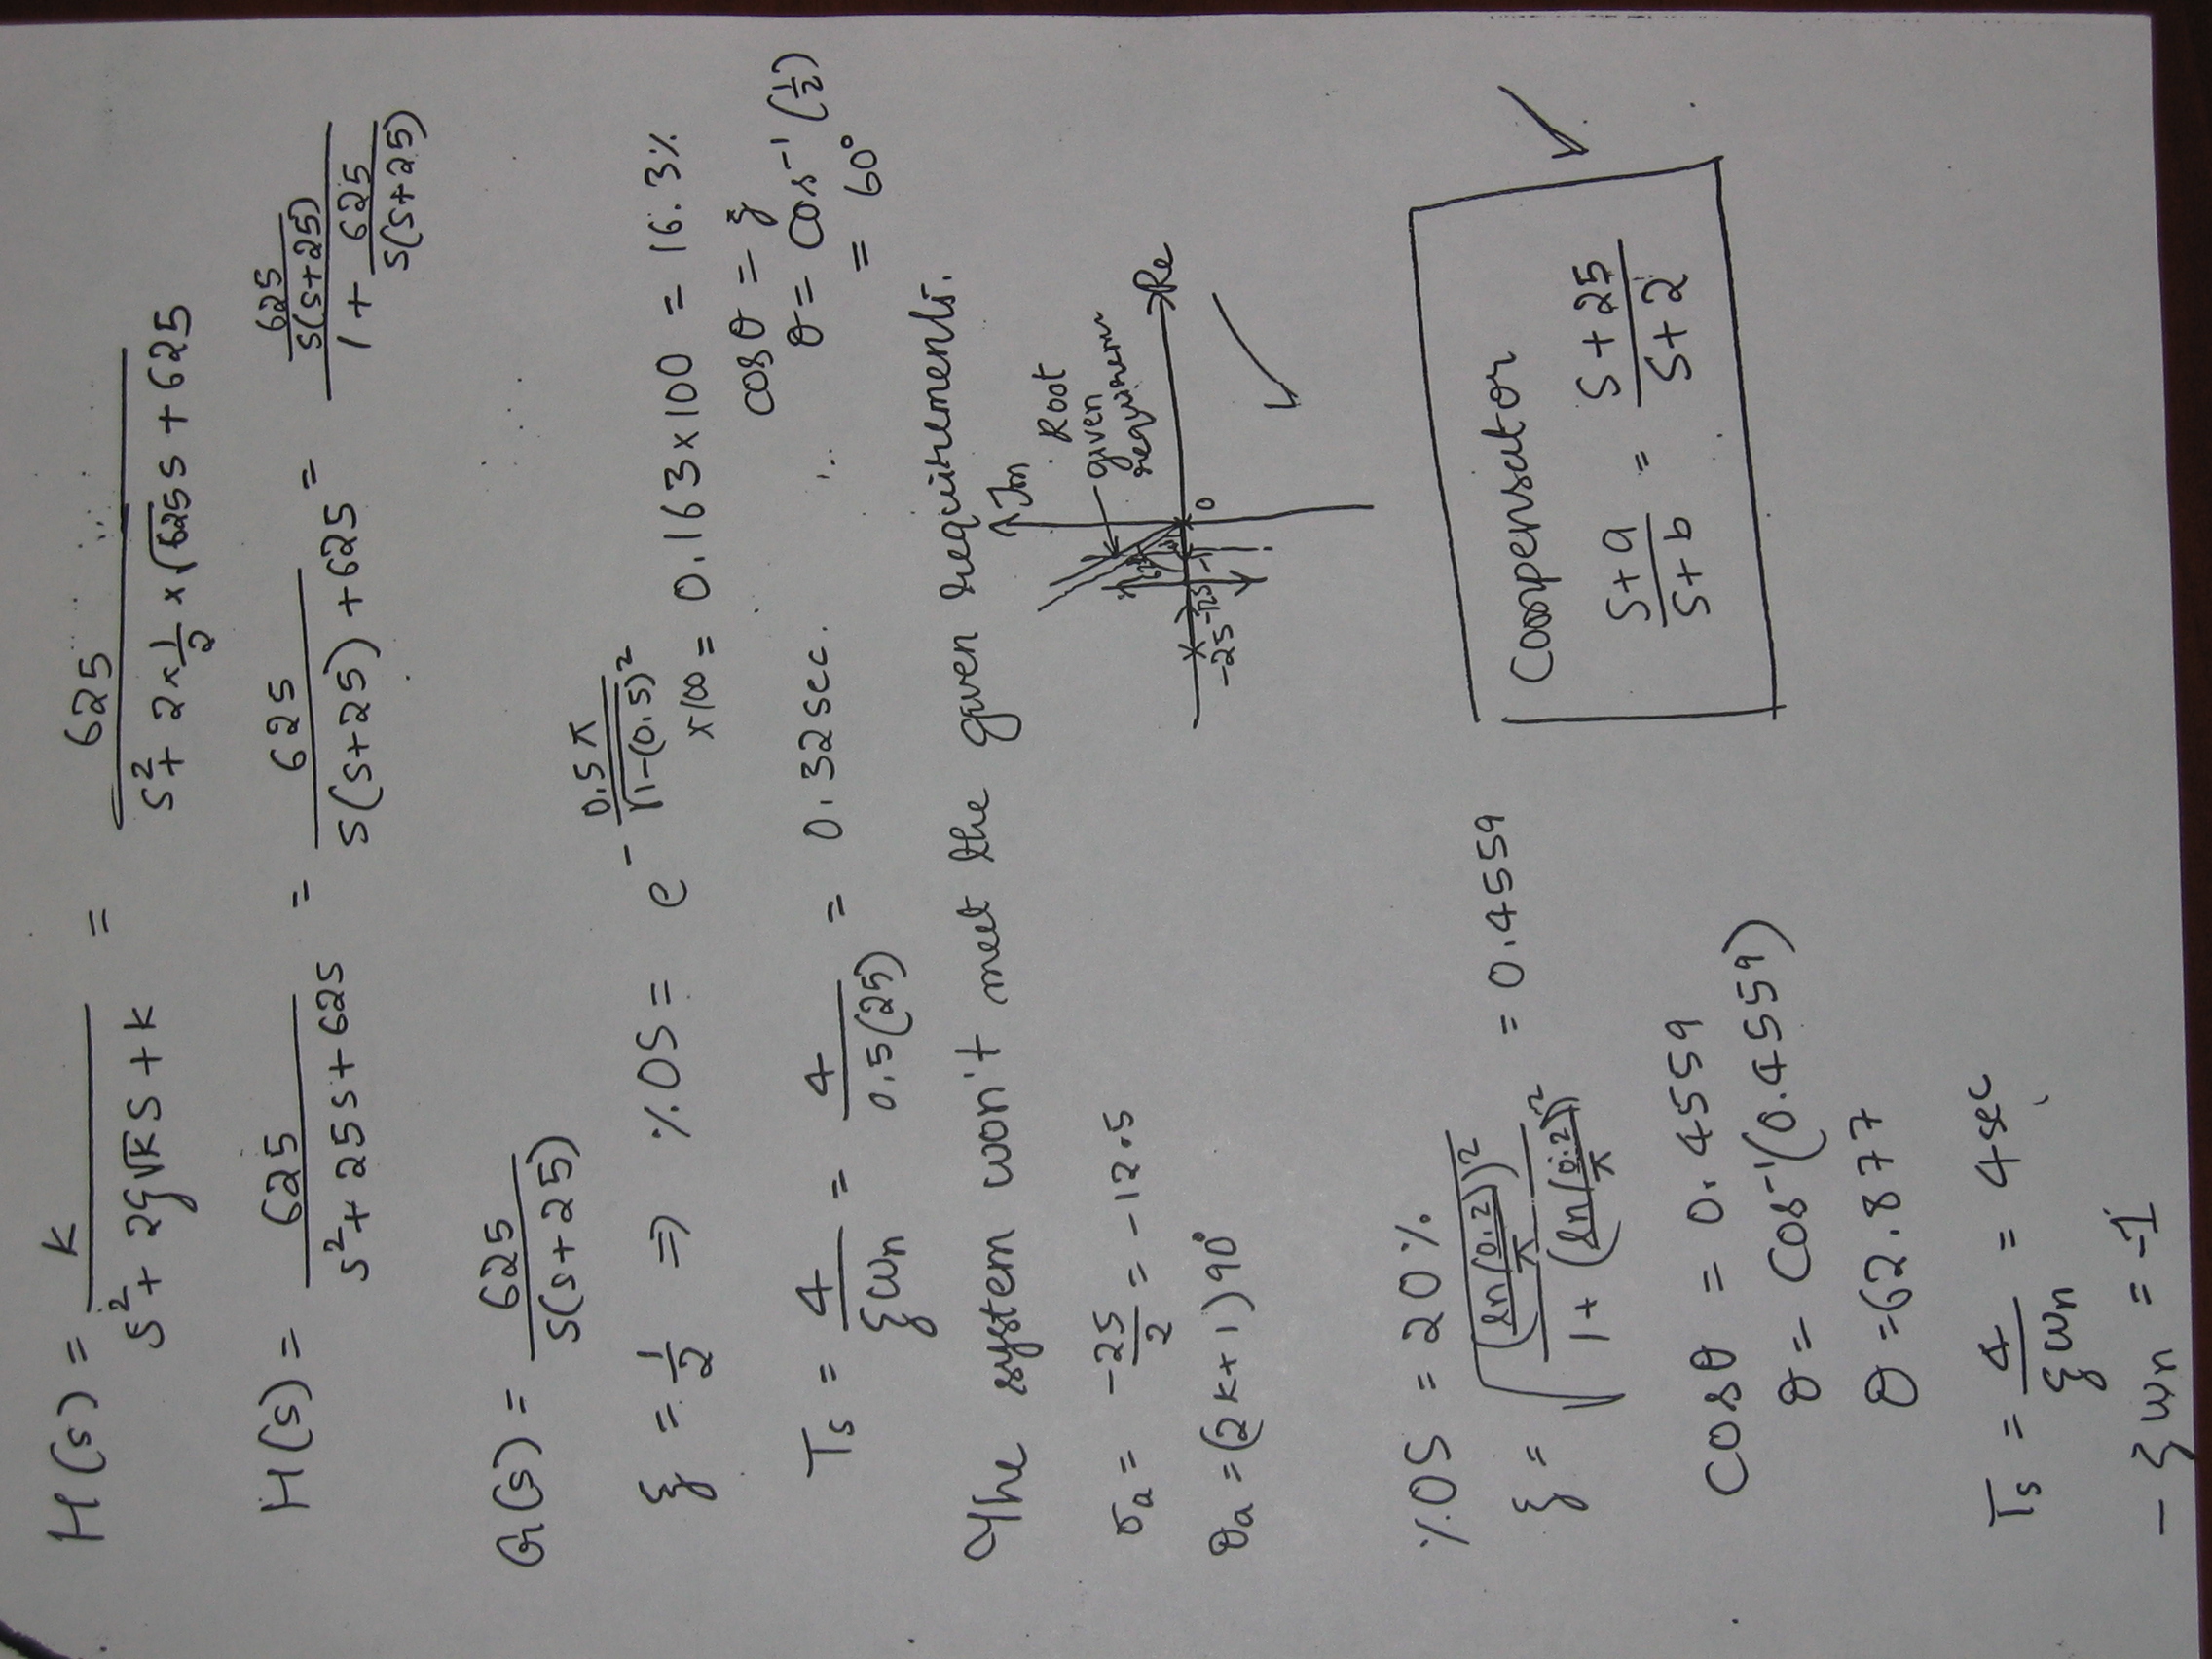 H(s) = K / (s² + 2ξ√K s + K) = 625 / (s² + 2 × 1/2 × √625 s + 625)
H(s) = 625 / (s² + 25s + 625) = 625 / (s(s+25) + 625) = (625 / (s(s+25))) / (1 + 625 / (s(s+25)))
G(s) = 625 / (s(s+25))
ξ = 1/2 ⇒ %OS = e^(-0.5π / √(1-(0.5)²)) × 100 = 0.163 × 100 = 16.3%
cos θ = ξ
θ = cos⁻¹(1/2)
= 60°
Ts = 4 / (ξωn) = 4 / (0.5(25)) = 0.32 sec.
The system won't meet the given requirements.
σa = -25/2 = -12.5
θa = (2K+1)90°
Im
Root
given
requirement
Re
-25
-12.5
-1
0
%OS = 20%
ξ = √((ln(0.2)/π)² / (1 + (ln(0.2)/π)²)) = 0.4559
cos θ = 0.4559
θ = cos⁻¹(0.4559)
θ = 62.877
Ts = 4 / (ξωn) = 4 sec
-ξωn = -1
Compensator
(s+a) / (s+b) = (s+25) / (s+2)